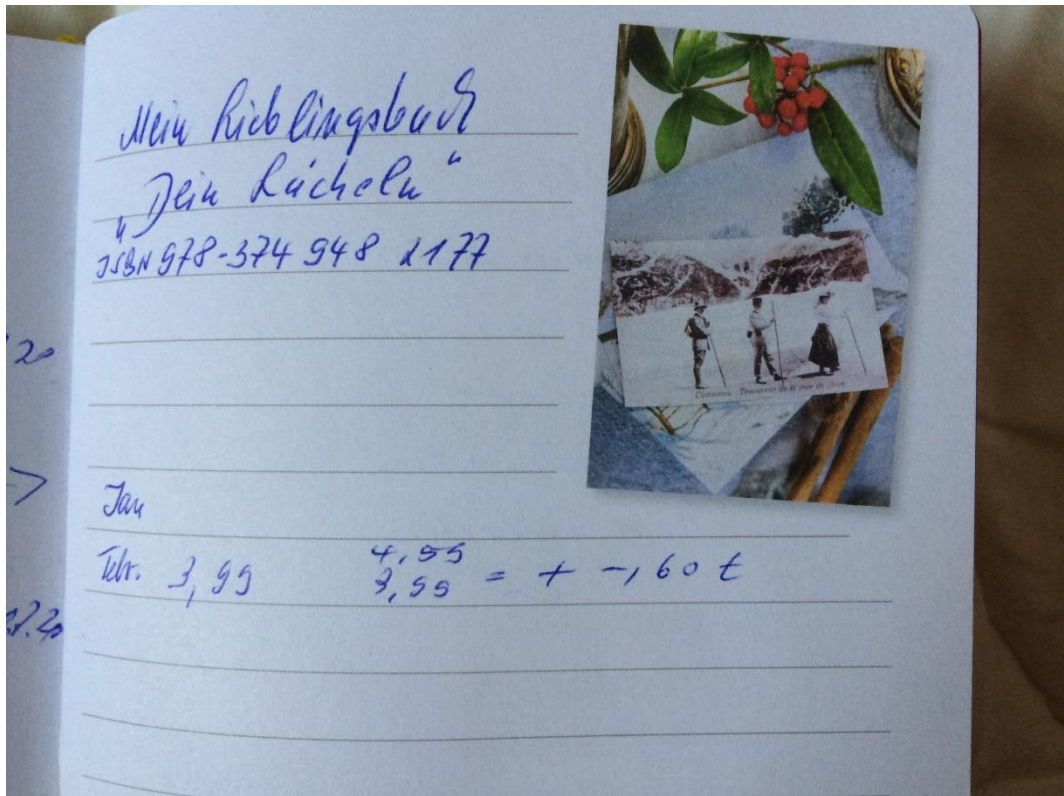 Mein Lieblingsbuch
„Dein Lächeln“
ISBN 978-374 948 2177
Jan
Febr. 3,99
4,59
3,99 = + -,60 €
20